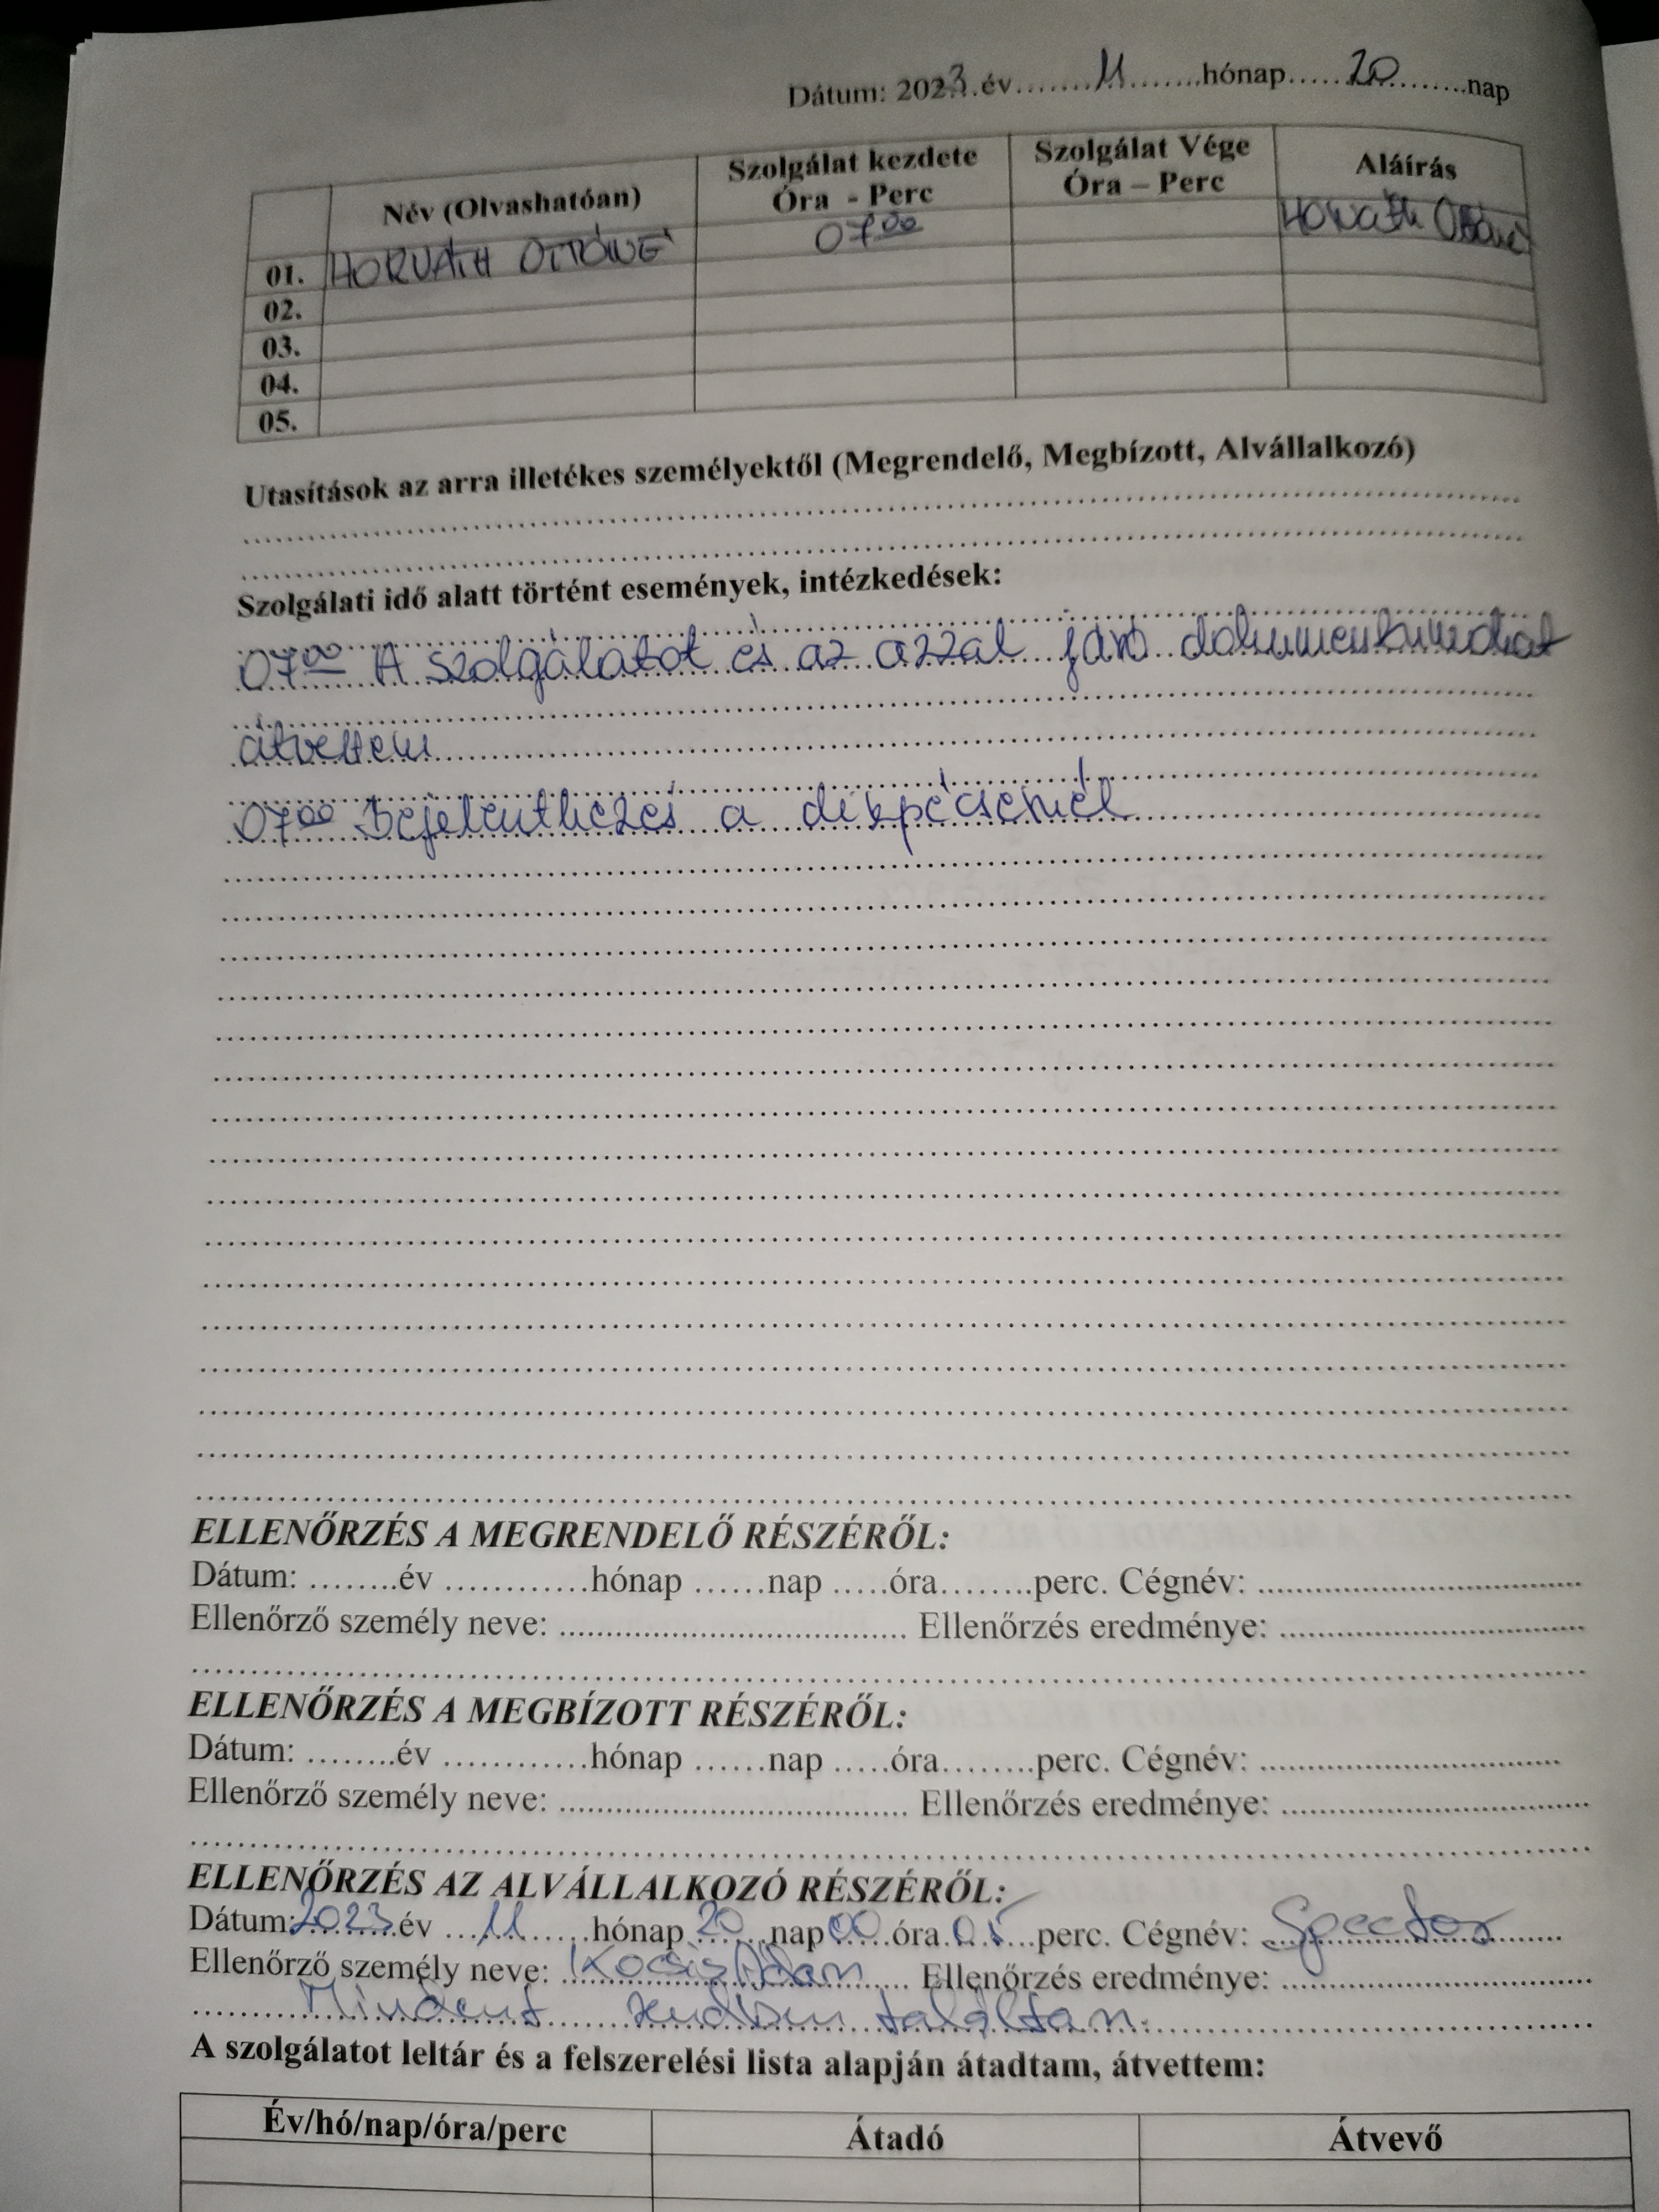 Dátum: 2023.év 11 hónap 20 nap
Név (Olvashatóan) Szolgálat kezdete Óra - Perc Szolgálat Vége Óra – Perc Aláírás
01. HORVÁTH OTTÓNÉ 07⁰⁰ Horváth Ottóné
02.
03.
04.
05.
Utasítások az arra illetékes személyektől (Megrendelő, Megbízott, Alvállalkozó)
Szolgálati idő alatt történt események, intézkedések:
07⁰⁰ A szolgálatot és az azzal járó dokumentumokat
átvettem
07⁰⁰ Bejelentkezés a diszpécsernél
ELLENŐRZÉS A MEGRENDELŐ RÉSZÉRŐL:
Dátum: ........év .............hónap ......nap .....óra........perc. Cégnév: ..............................
Ellenőrző személy neve: .................................. Ellenőrzés eredménye: ..............................
ELLENŐRZÉS A MEGBÍZOTT RÉSZÉRŐL:
Dátum: ........év .............hónap ......nap .....óra........perc. Cégnév: ..............................
Ellenőrző személy neve: .................................. Ellenőrzés eredménye: ..............................
ELLENŐRZÉS AZ ALVÁLLALKOZÓ RÉSZÉRŐL:
Dátum: 2023 év 11 hónap 20 nap 00 óra 05 perc. Cégnév: Spector
Ellenőrző személy neve: Kocsis Ádám Ellenőrzés eredménye:
Mindent rendben találtam.
A szolgálatot leltár és a felszerelési lista alapján átadtam, átvettem:
Év/hó/nap/óra/perc Átadó Átvevő